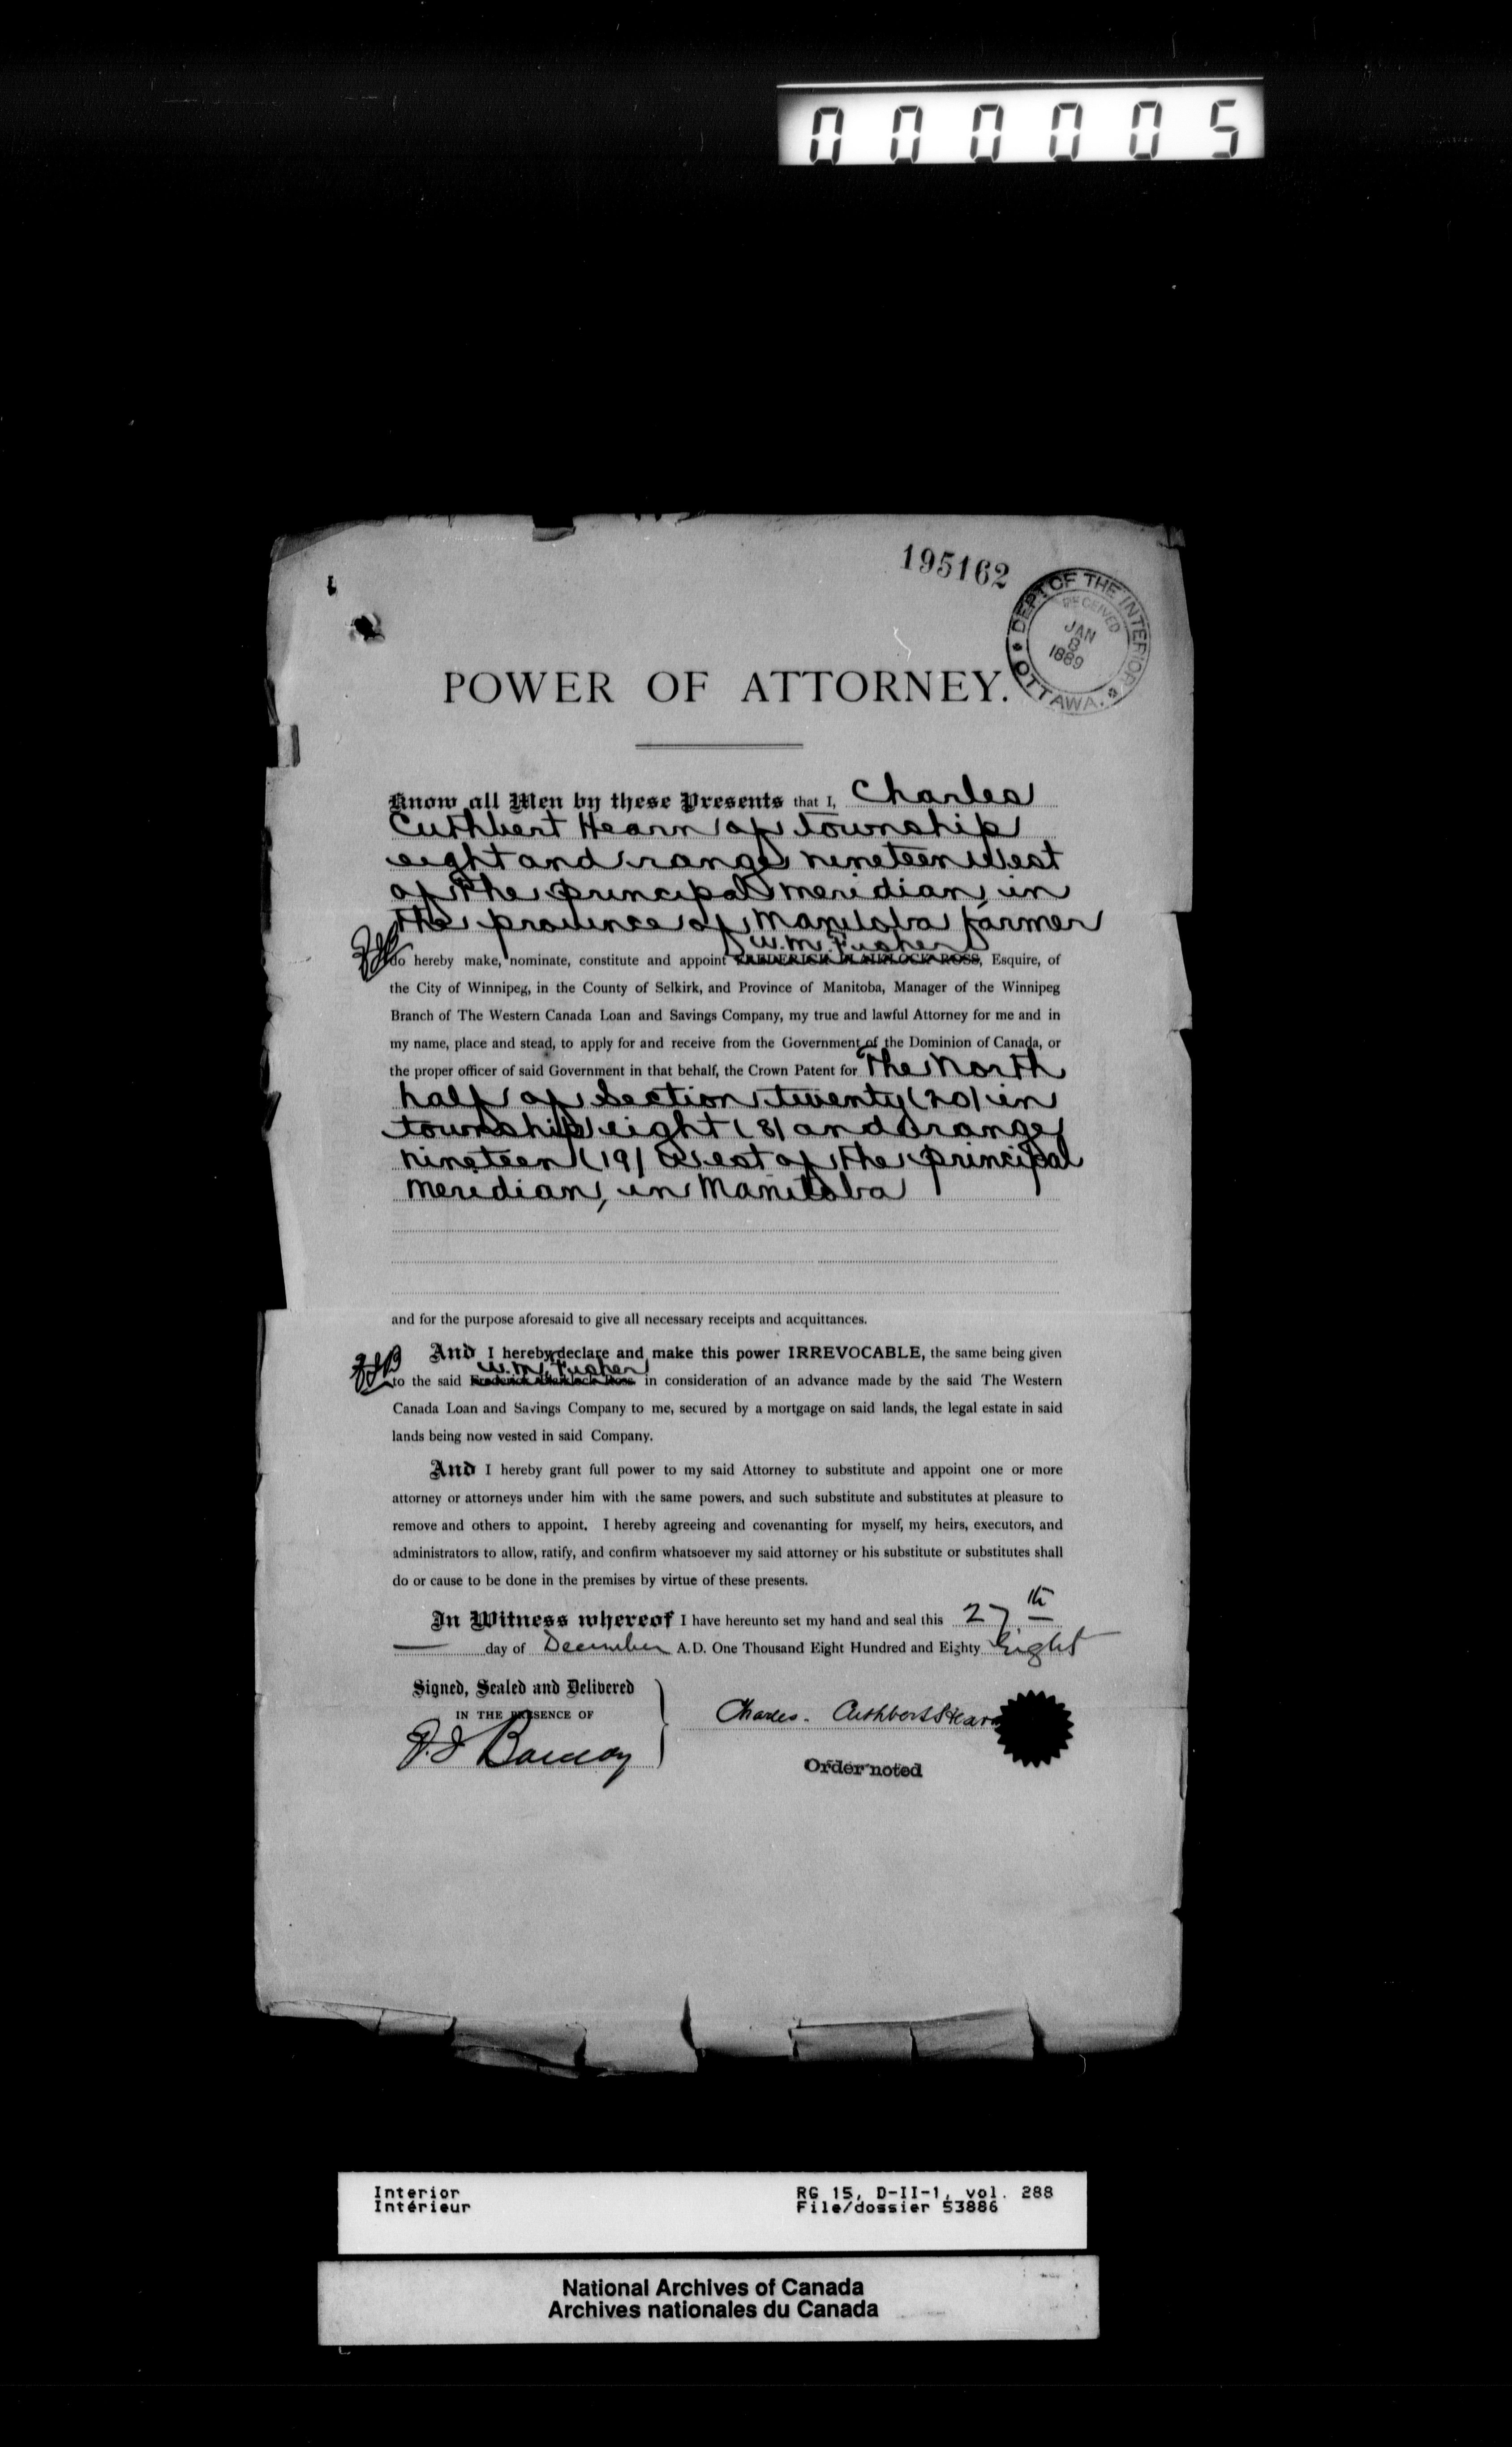 000005
195162
DEPT OF THE INTERIOR
RECEIVED
JAN
8
1889
OTTAWA.
POWER OF ATTORNEY.
Know all Men by these Presents that I, Charles
Cuthbert Hearn of township
eight and range nineteen West
of the principal meridian, in
the province of Manitoba farmer
W. M. Fisher
do hereby make, nominate, constitute and appoint FREDERICK BLAIKLOCK ROSS, Esquire, of
the City of Winnipeg, in the County of Selkirk, and Province of Manitoba, Manager of the Winnipeg
Branch of The Western Canada Loan and Savings Company, my true and lawful Attorney for me and in
my name, place and stead, to apply for and receive from the Government of the Dominion of Canada, or
the proper officer of said Government in that behalf, the Crown Patent for The North
half of Section twenty (20) in
township eight (8) and range
nineteen (19) West of the principal
meridian, in Manitoba
and for the purpose aforesaid to give all necessary receipts and acquittances.
And I hereby declare and make this power IRREVOCABLE, the same being given
W. M. Fisher
to the said Frederick Blaiklock Ross in consideration of an advance made by the said The Western
Canada Loan and Savings Company to me, secured by a mortgage on said lands, the legal estate in said
lands being now vested in said Company.
And I hereby grant full power to my said Attorney to substitute and appoint one or more
attorney or attorneys under him with the same powers, and such substitute and substitutes at pleasure to
remove and others to appoint. I hereby agreeing and covenanting for myself, my heirs, executors, and
administrators to allow, ratify, and confirm whatsoever my said attorney or his substitute or substitutes shall
do or cause to be done in the premises by virtue of these presents.
In Witness whereof I have hereunto set my hand and seal this 27th
day of December A.D. One Thousand Eight Hundred and Eighty Eight
Signed, Sealed and Delivered
IN THE PRESENCE OF
Charles. Cuthbert Hearn
Order noted
Interior
Intérieur
RG 15, D-II-1, vol. 288
File/dossier 53886
National Archives of Canada
Archives nationales du Canada